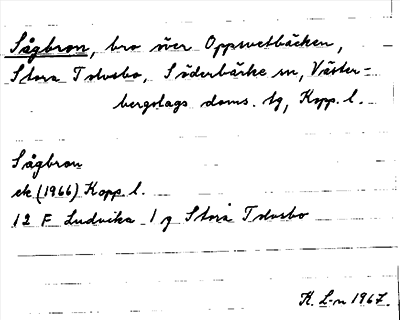 Sågbron, bro över Oppsvetbäcken,
Stora Tolvsbo, Söderbärke sn, Väster-
bergslags doms. tg, Kopp. l.
Sågbron
ek (1966) Kopp l.
12 F Ludvika 1 g Stora Tolvsbo
K. L-n 1967.